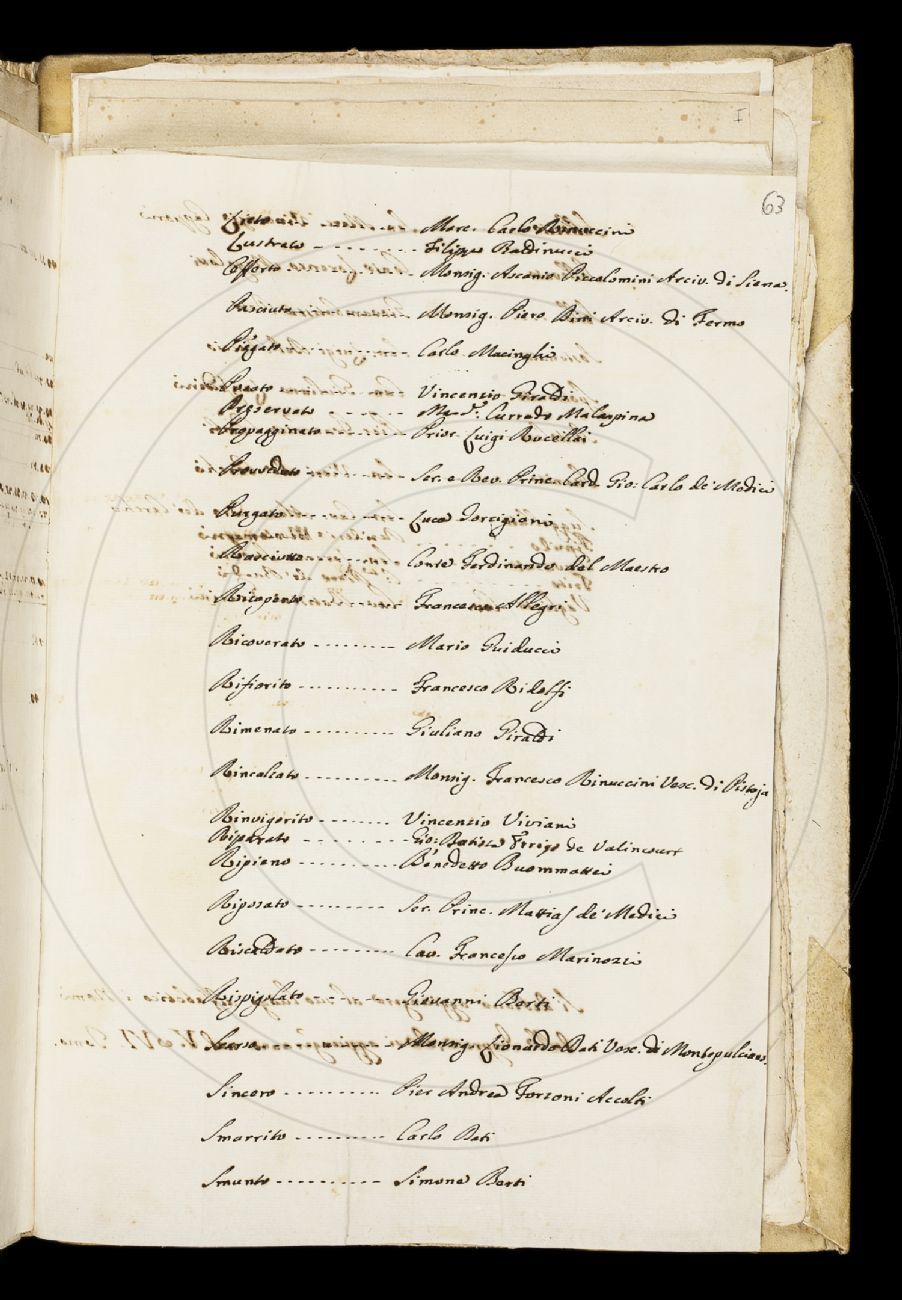 I
63
Lieto - - - - - - - - - - Marc. Carlo Rinuccini
Lustrato - - - - - - - - Filippo Baldinucci
Offerto - - - - - - - - Monsig. Ascanio Piccolomini Arciv. di Siena.
Pasciuto - - - - - - - - Monsig. Piero Bini Arciv. di Fermo
Piegato - - - - - - - - Carlo Macinghi
Pronto - - - - - - - - Vincenzio Giraldi
Preservato - - - - - - Currado Malaspina
Propagginato - - - - - - Prior. Luigi Rucellai
Provveduto - - - - - - Ser. e Rev. Princ. Card. Gio: Carlo de' Medici
Purgato - - - - - - - - Luca Torrigiani
Rasciutto - - - - - - - - Conte Ferdinando del Maestro
Ricoperto - - - - - - - - Francesco Allegri
Ricoverato - - - - - - - - Mario Guiducci
Rifiorito - - - - - - - - - - Francesco Ridolfi
Rimenato - - - - - - - - - - Giuliano Giraldi
Rincalzato - - - - - - - - - - Monsig. Francesco Rinuccini Vesc. di Pistoja
Rinvigorito - - - - - - - - Vincenzio Viviani
Riparato - - - - - - - - - Gio: Batista Errigo de Valincourt
Ripieno - - - - - - - - - - Benedetto Buommattei
Riposato - - - - - - - - - - Ser. Princ. Mattias de' Medici
Riscaldato - - - - - - - - Cav. Francesco Marinozzi
Rispigolato - - - - - - - - Giovanni Berti
Scarso - - - - - - - - Monsig. Lionardo Dati Vesc. di Montepulciano.
Sincero - - - - - - - - - - Pier Andrea Forzoni Accolti
Smarrito - - - - - - - - - Carlo Dati
Smunto - - - - - - - - - - Simone Berti